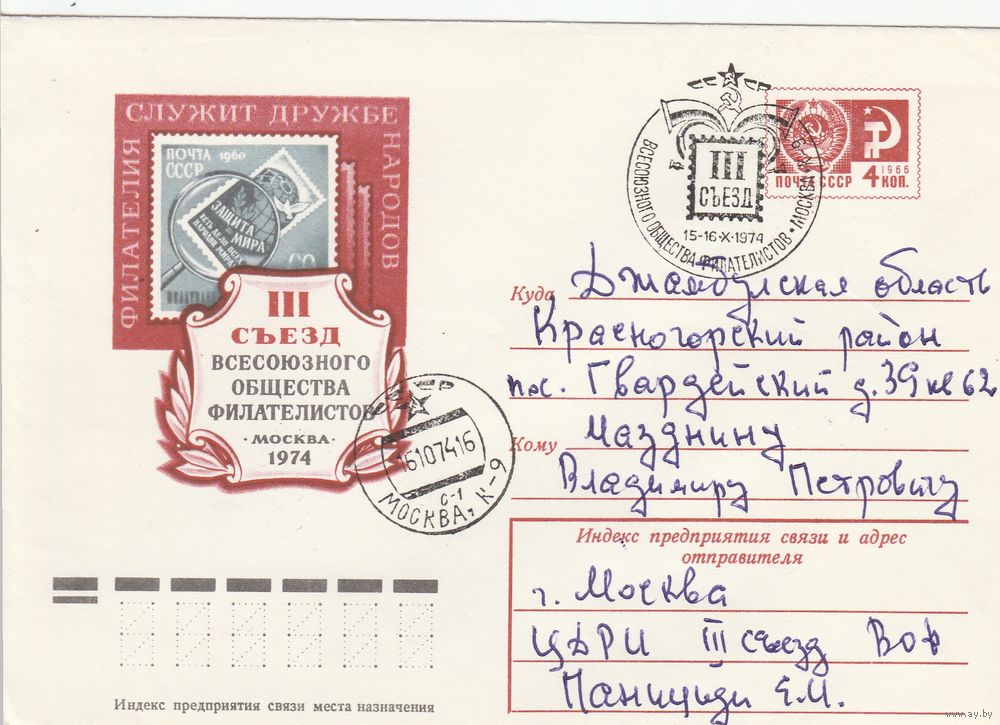 ФИЛАТЕЛИЯ СЛУЖИТ ДРУЖБЕ НАРОДОВ
ПОЧТА 1960
СССР
ЗАЩИТА
МИРА
ЕСТЬ ДЕЛО ВСЕХ
НАРОДОВ МИРА
60
III
СЪЕЗД
ВСЕСОЮЗНОГО
ОБЩЕСТВА
ФИЛАТЕЛИСТОВ
· МОСКВА ·
1974
СССР
III
СЪЕЗД
15-16·X·1974
ВСЕСОЮЗНОГО ОБЩЕСТВА ФИЛАТЕЛИСТОВ • МОСКВА
ПОЧТА СССР
1966
4 КОП.
СССР
16107416
С-1
МОСКВА, К-9
Куда Джамбулская область
Красногорский район
пос. Гвардейский д. 39 кв 62
Кому Мазднину
Владимиру Петровичу
Индекс предприятия связи и адрес
отправителя
г. Москва
ЦДРИ III съезд ВОФ
Е.М.
Индекс предприятия связи места назначения
www.ay.by